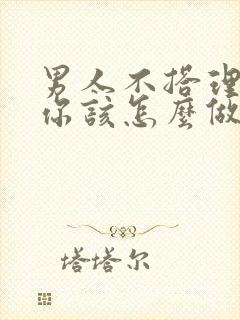 男人不搭理
你该怎麼做
塔塔尔